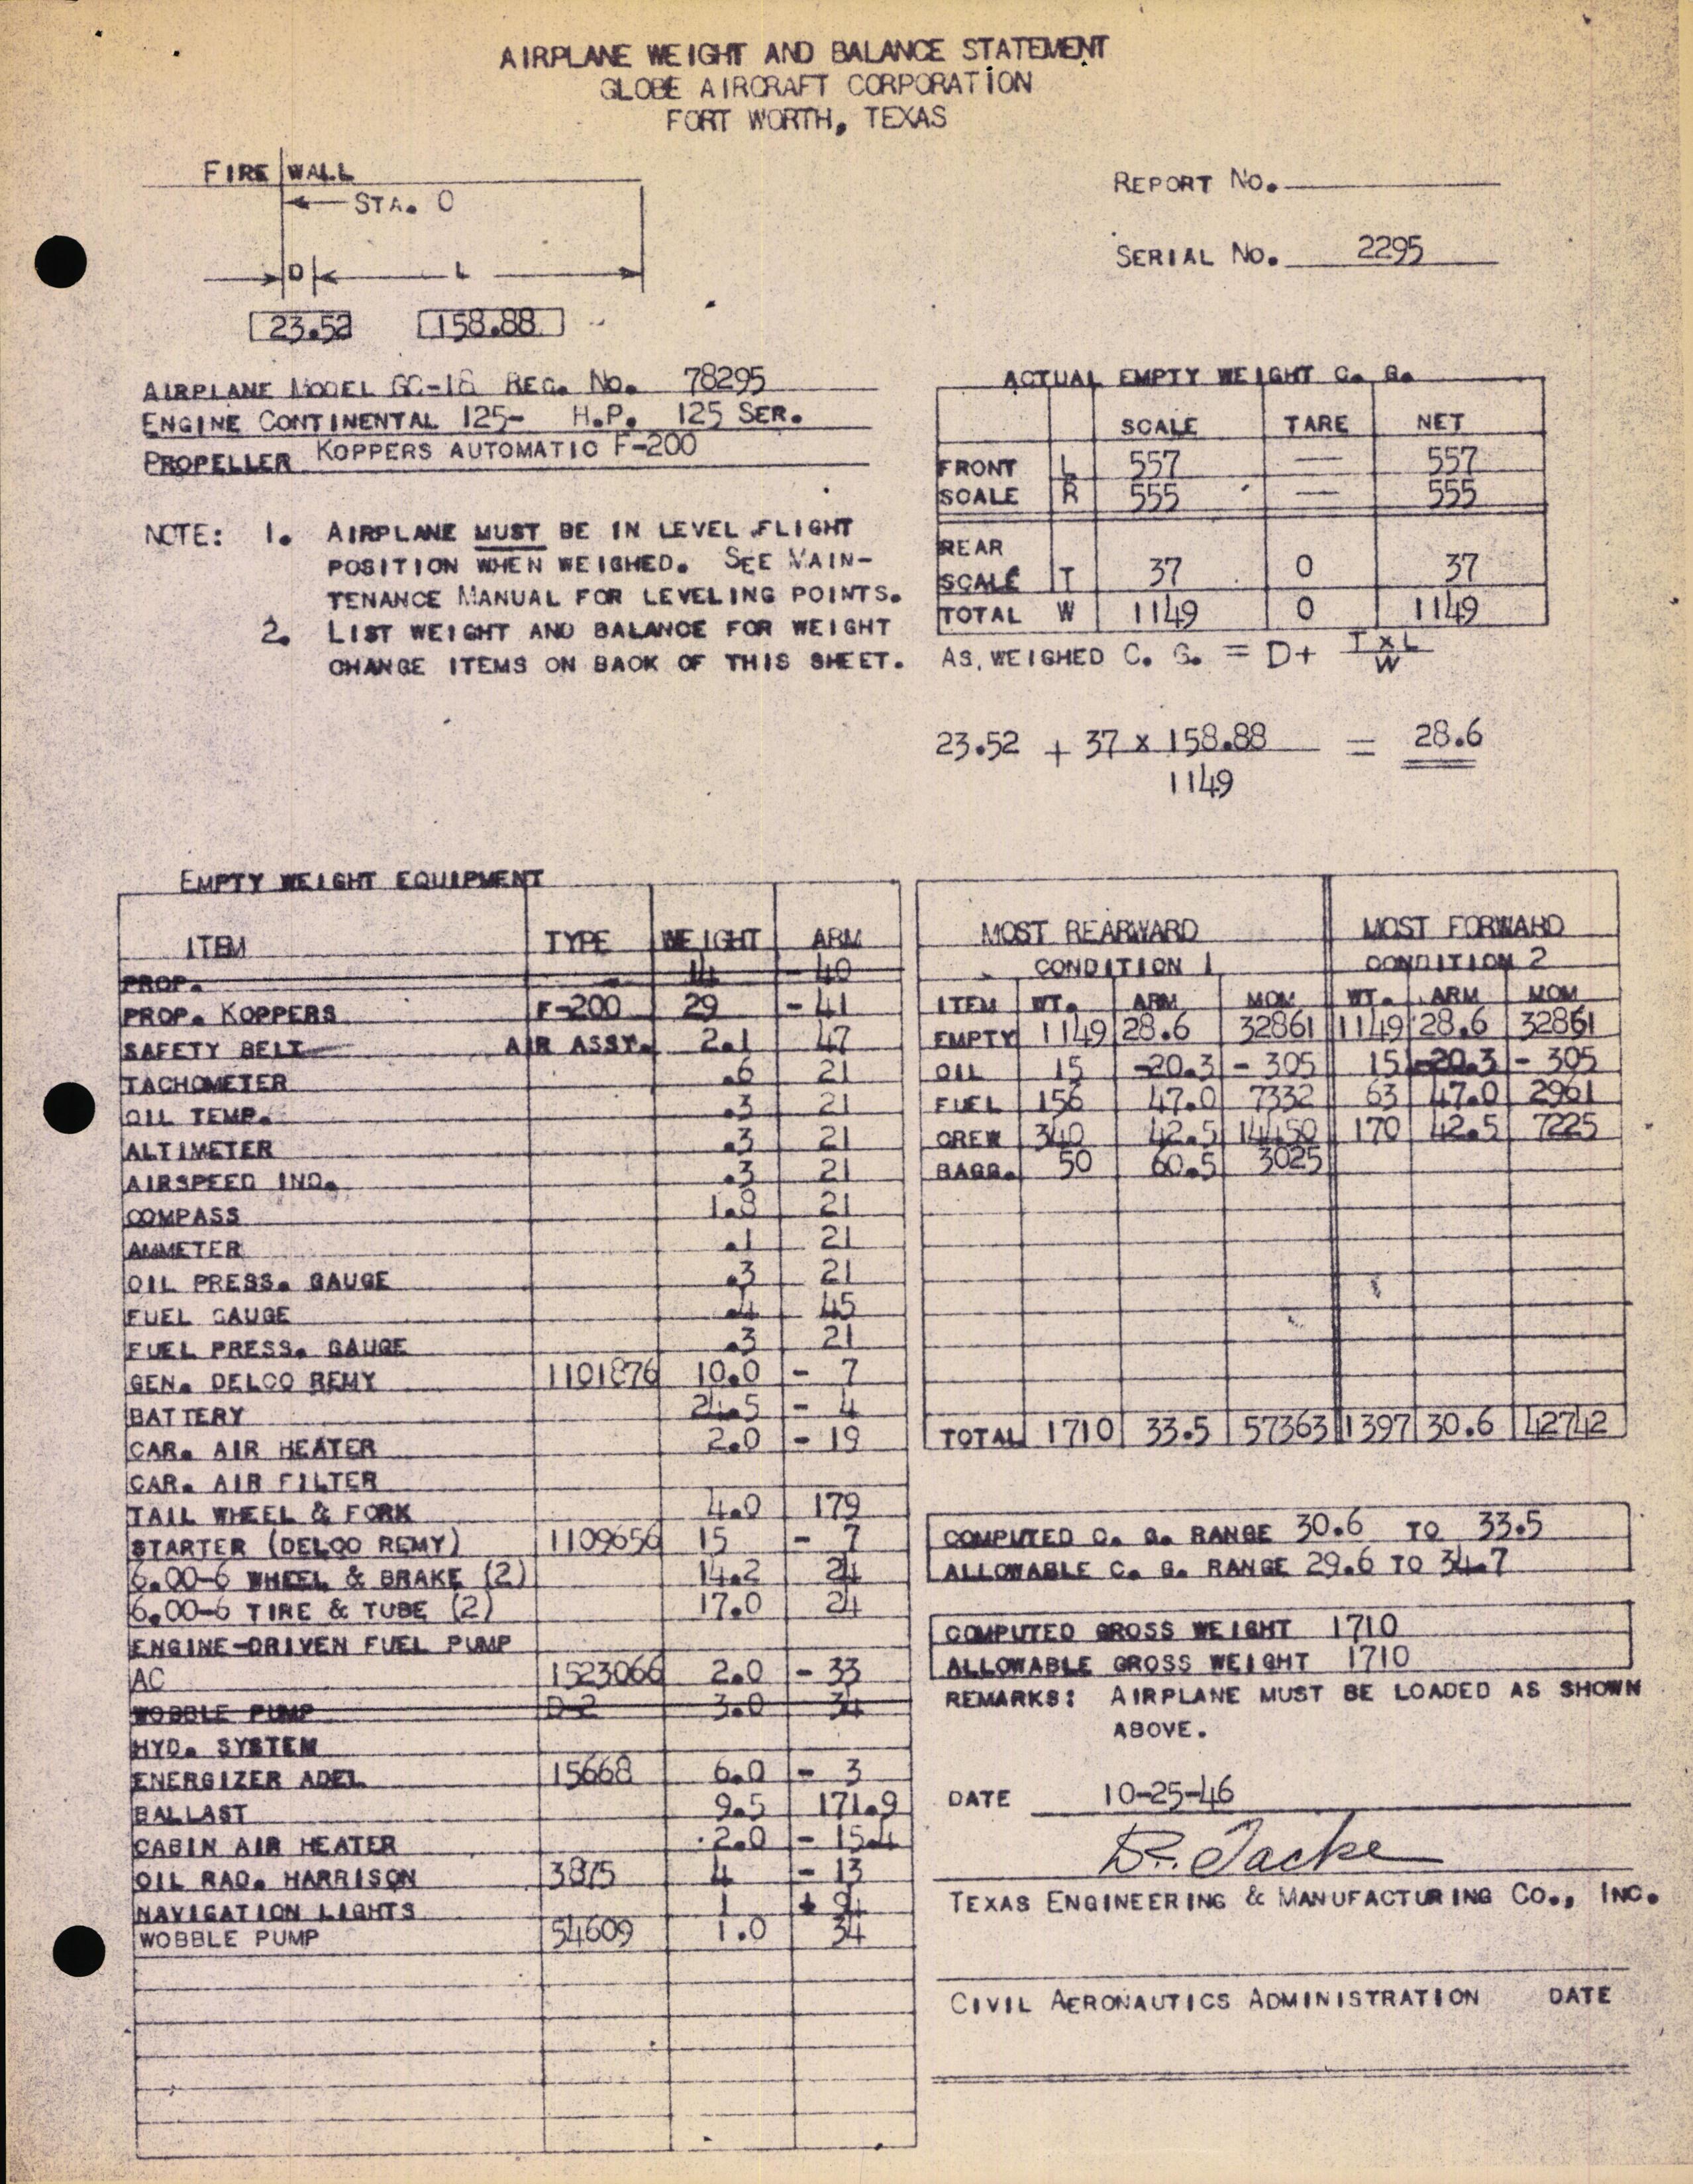 AIRPLANE WEIGHT AND BALANCE STATEMENT
GLOBE AIRCRAFT CORPORATION
FORT WORTH, TEXAS
FIRE WALL
STA. 0
D L
23.52 158.88
REPORT NO.
SERIAL NO. 2295
AIRPLANE MODEL GC-1B REG. NO. 78295
ENGINE CONTINENTAL 125- H.P. 125 SER.
PROPELLER KOPPERS AUTOMATIC F-200
NOTE: 1. AIRPLANE MUST BE IN LEVEL FLIGHT
POSITION WHEN WEIGHED. SEE MAIN-
TENANCE MANUAL FOR LEVELING POINTS.
2. LIST WEIGHT AND BALANCE FOR WEIGHT
CHANGE ITEMS ON BACK OF THIS SHEET.
ACTUAL EMPTY WEIGHT C. G.
SCALE TARE NET
FRONT L 557 — 557
SCALE R 555 — 555
REAR
SCALE T 37 0 37
TOTAL W 1149 0 1149
AS WEIGHED C. G. = D+ T x L
W
23.52 + 37 x 158.88 = 28.6
1149
EMPTY WEIGHT EQUIPMENT
ITEM TYPE WEIGHT ARM
PROP. 14 - 40
PROP. KOPPERS F-200 29 - 41
SAFETY BELT AIR ASSY. 2.1 47
TACHOMETER .6 21
OIL TEMP. .3 21
ALTIMETER .3 21
AIRSPEED IND. .3 21
COMPASS 1.8 21
AMMETER .1 21
OIL PRESS. GAUGE .3 21
FUEL GAUGE .4 45
FUEL PRESS. GAUGE .3 21
GEN. DELCO REMY 1101876 10.0 - 7
BATTERY 24.5 - 4
CAR. AIR HEATER 2.0 - 19
CAR. AIR FILTER
TAIL WHEEL & FORK 4.0 179
STARTER (DELCO REMY) 1109656 15 - 7
6.00-6 WHEEL & BRAKE (2) 14.2 24
6.00-6 TIRE & TUBE (2) 17.0 24
ENGINE-DRIVEN FUEL PUMP
AC 1523066 2.0 - 33
WOBBLE PUMP D-2 3.0 34
HYD. SYSTEM
ENERGIZER ADEL 15668 6.0 - 3
BALLAST 9.5 171.9
CABIN AIR HEATER 2.0 - 15.4
OIL RAD. HARRISON 3875 4 - 13
NAVIGATION LIGHTS 1 + 94
WOBBLE PUMP 54609 1.0 34
MOST REARWARD MOST FORWARD
CONDITION 1 CONDITION 2
ITEM WT. ARM MOM WT. ARM MOM
EMPTY 1149 28.6 32861 1149 28.6 32861
OIL 15 -20.3 - 305 15 -20.3 - 305
FUEL 156 47.0 7332 63 47.0 2961
CREW 340 42.5 14450 170 42.5 7225
BAGG. 50 60.5 3025
TOTAL 1710 33.5 57363 1397 30.6 42742
COMPUTED C. G. RANGE 30.6 TO 33.5
ALLOWABLE C. G. RANGE 29.6 TO 34.7
COMPUTED GROSS WEIGHT 1710
ALLOWABLE GROSS WEIGHT 1710
REMARKS: AIRPLANE MUST BE LOADED AS SHOWN
ABOVE.
DATE 10-25-46
TEXAS ENGINEERING & MANUFACTURING CO., INC.
CIVIL AERONAUTICS ADMINISTRATION DATE